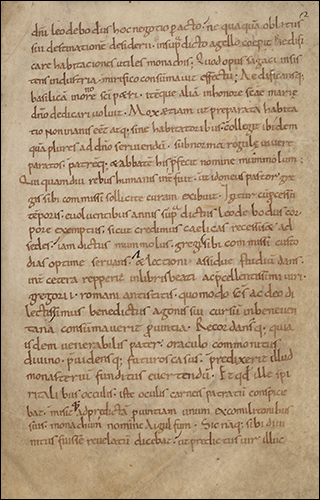 dn̄i leodebodus hoc negotio peracto, ne quaquā oblitus
sui destinatione desiderii, insup dicto agello coepit aedifi
care habitationes utiles monachis; Quod opus sagaci insis
tens industria, mirifico consummavit effectu; Aedificansq;
basilicā in honore sc̄i petri, itēque aliā in honore sc̄ae mariae
dn̄o dedicari voluit. Mox aetiam ut preparata habita
tio non inanis eēt atq; sine habitatoribus, collegit ibidem
quā plures ad dn̄o serviendū, sub norma regulę vivere
paratos, patrēq; & abbatē his prefecit nomine mummolum;
Qui quamdiu rebus humanis interfuit, ut idoneus pastor gre
gis sibi commissi sollicite curam exibuit. Igitur succesu
temporis, evolventibus annis sup dictus leodebodus cor
pore exemptus, sicut credimus caelicas recessiss& ad
sedes, iam dictus mummolus, gregis sibi commissi custo
dias optime servans, & lectioni assidue studium dans,
inter cetera repperit in libris beati ac pcellentissimi viri
gregorii, romani antistitis, quomodo sc̄s ac dō di
lectissimus benedictus agonis sui cursū in beneven
tana consummaverit provintia. Recordansq; quia
isdem venerabilis pater, oraculo commonitus
divino, providensq; futuros casus, predixerit illud
monasteriū funditus evertendū. Et qđ ille spi
ritalibus oculis, iste oculis carneis patratū conspicie
bat, misit ad predictā provintiam unum ex commilitonibus
suis, monachum nomine aigulfum. Sic naq; sibi divi
nitus fuisse revelatū dicebat, ut predictus vir illuc